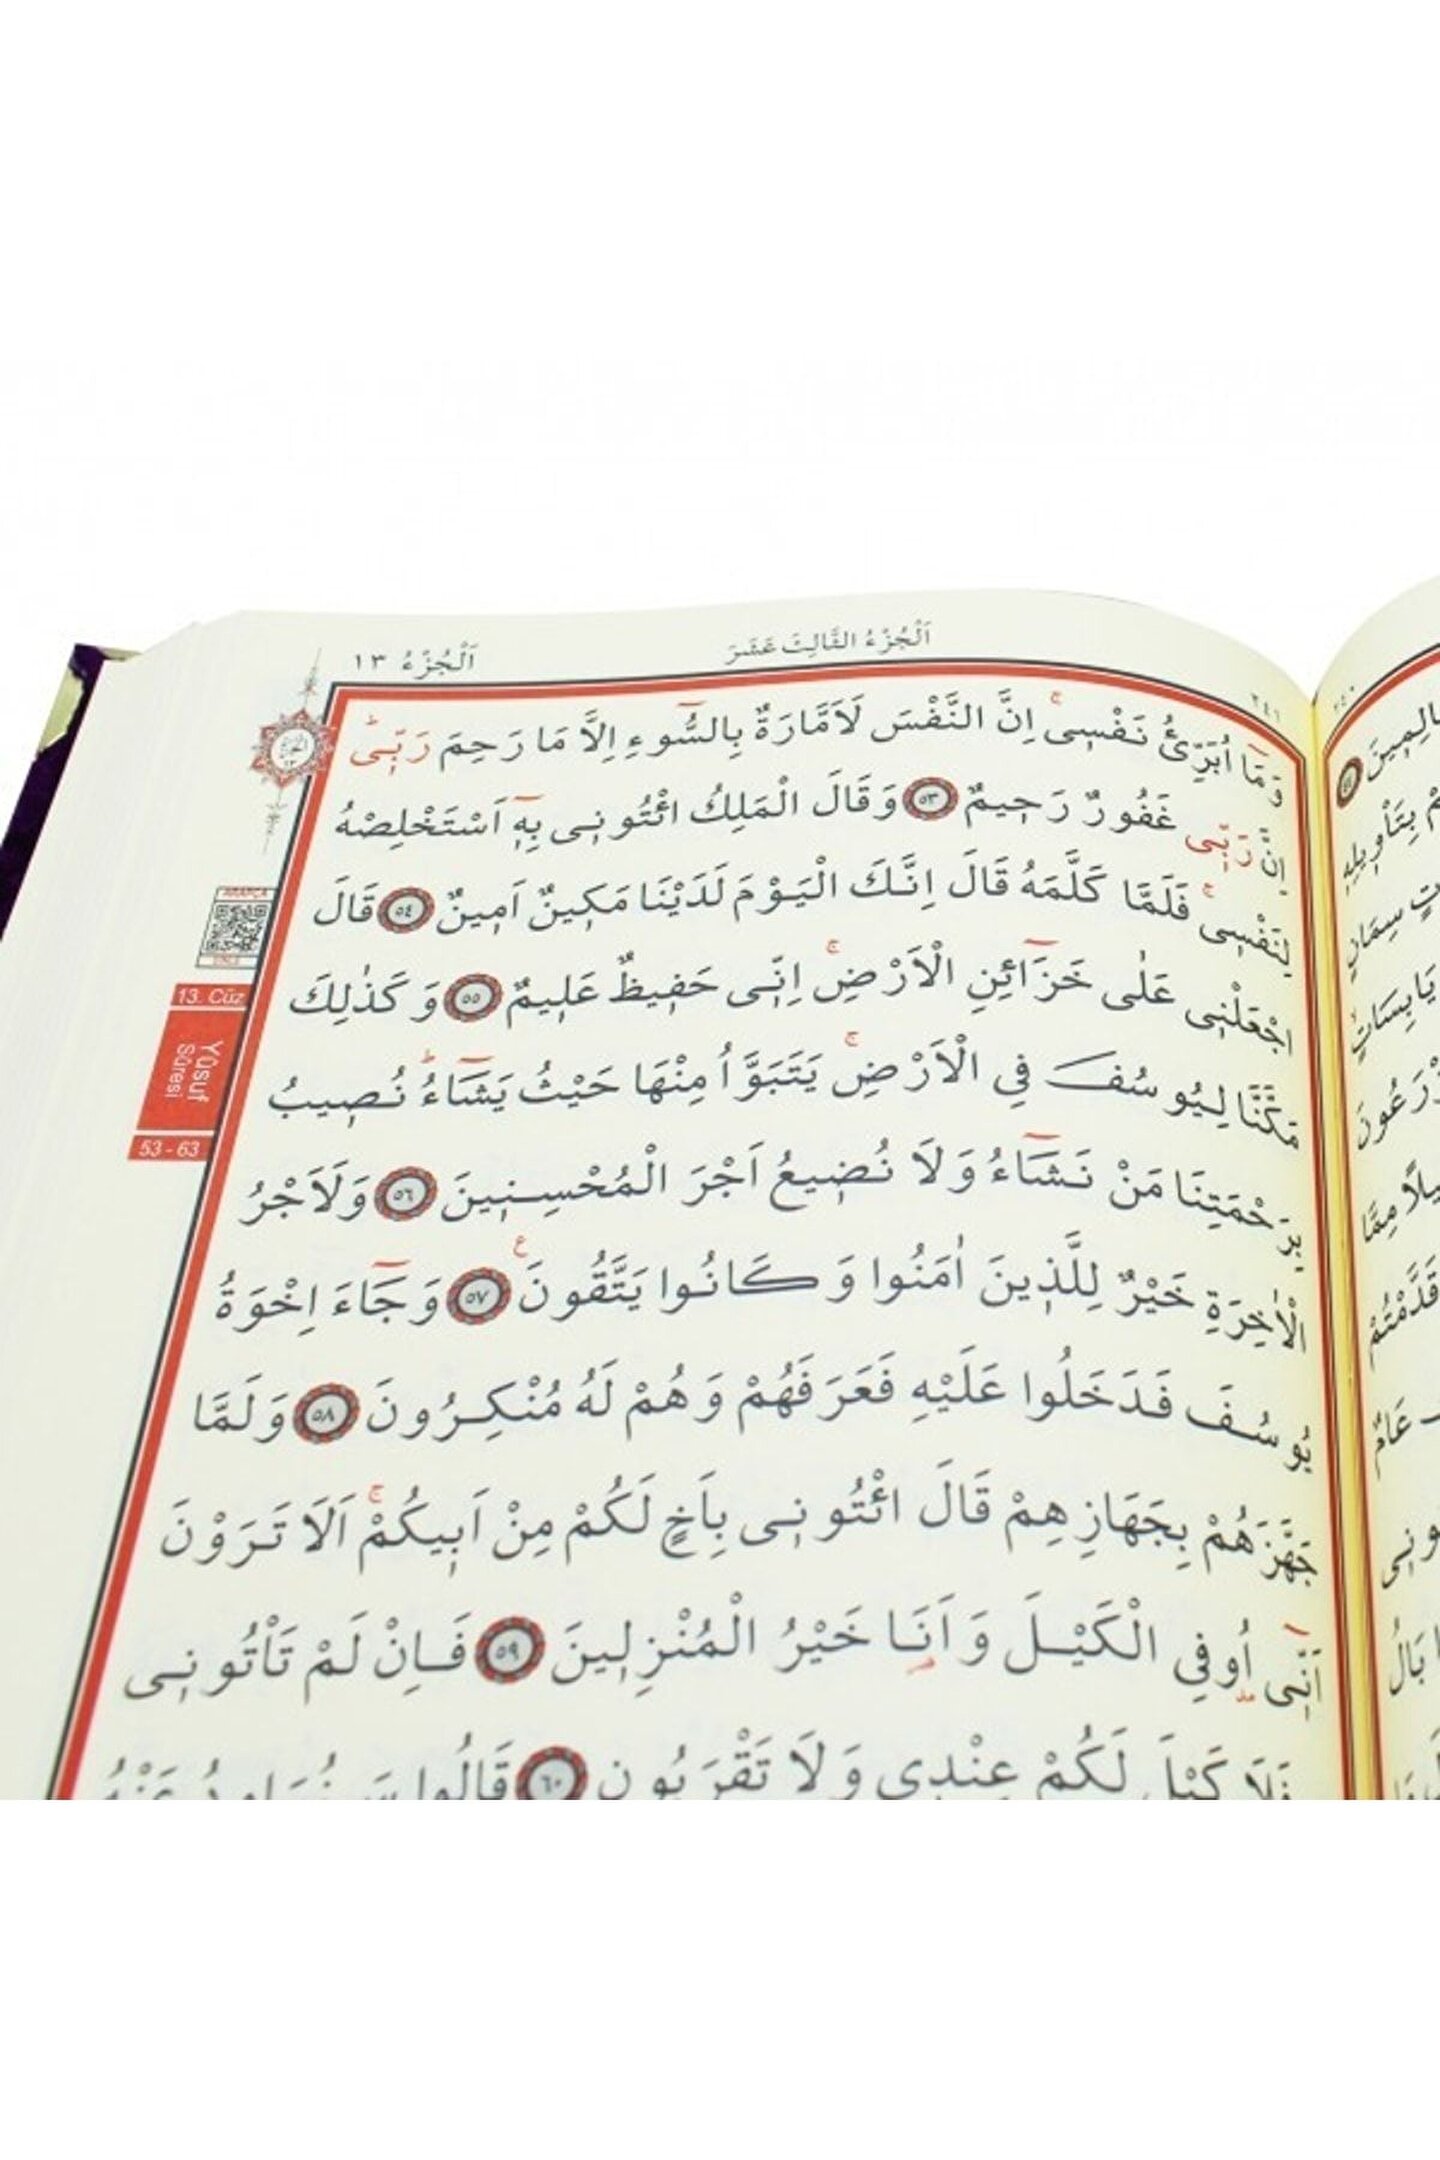 اَلْجُزْءُ الثَّالِثَ عَشَرَ
اَلْجُزْءُ ١٣
وَمَٓا اُبَرِّئُ نَفْسٖيۚ اِنَّ النَّفْسَ لَاَمَّارَةٌ بِالسُّٓوءِ اِلَّا مَا رَحِمَ رَبّٖيؕ
اِنَّ رَبّٖي غَفُورٌ رَحٖيمٌ ﴿٥٣﴾ وَقَالَ الْمَلِكُ ائْتُونٖي بِهٖٓ اَسْتَخْلِصْهُ
لِنَفْسٖيۚ فَلَمَّا كَلَّمَهُ قَالَ اِنَّكَ الْيَوْمَ لَدَيْنَا مَكٖينٌ اَمٖينٌ ﴿٥٤﴾ قَالَ
اجْعَلْنٖي عَلٰى خَزَٓائِنِ الْاَرْضِۚ اِنّٖي حَفٖيظٌ عَلٖيمٌ ﴿٥٥﴾ وَكَذٰلِكَ
مَكَّنَّا لِيُوسُفَ فِي الْاَرْضِۚ يَتَبَوَّاُ مِنْهَا حَيْثُ يَشَٓاءُؕ نُصٖيبُ
بِرَحْمَتِنَا مَنْ نَشَٓاءُ وَلَا نُضٖيعُ اَجْرَ الْمُحْسِنٖينَ ﴿٥٦﴾ وَلَاَجْرُ
الْاٰخِرَةِ خَيْرٌ لِلَّذٖينَ اٰمَنُوا وَكَانُوا يَتَّقُونَ ﴿٥٧﴾ وَجَٓاءَ اِخْوَةُ
يُوسُفَ فَدَخَلُوا عَلَيْهِ فَعَرَفَهُمْ وَهُمْ لَهُ مُنْكِرُونَ ﴿٥٨﴾ وَلَمَّا
جَهَّزَهُمْ بِجَهَازِهِمْ قَالَ ائْتُونٖي بِاَخٍ لَكُمْ مِنْ اَبٖيكُمْۚ اَلَا تَرَوْنَ
اَنّٖٓي اُوفِي الْكَيْلَ وَاَنَا خَيْرُ الْمُنْزِلٖينَ ﴿٥٩﴾ فَاِنْ لَمْ تَاْتُونٖي
فَلَا كَيْلَ لَكُمْ عِنْدٖي وَلَا تَقْرَبُونِ ﴿٦٠﴾ قَالُوا سَنُرَاوِدُ عَنْهُ
13. Cüz
Yûsuf
Sûresi
53 - 63